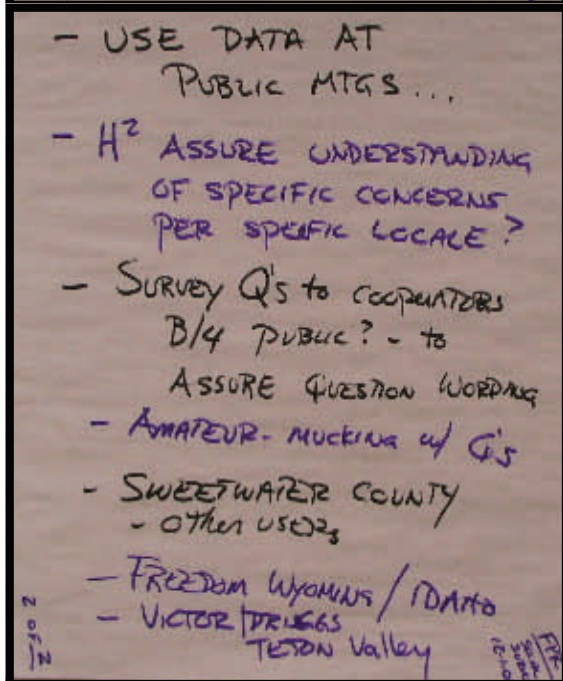 - USE DATA AT
PUBLIC MTGS...
- H² ASSURE UNDERSTANDING
OF SPECIFIC CONCERNS
PER SPEIFIC LOCALE?
- SURVEY Q's to COOPERATORS
B/4 PUBLIC? - to
ASSURE QUESTION WORDING
- AMATEUR- MUCKING w/ Q's
- SWEETWATER COUNTY
- OTHER USERS
- FREEDOM WYOMING / IDAHO
- VICTOR/DRIGGS
TETON Valley
2 of 2